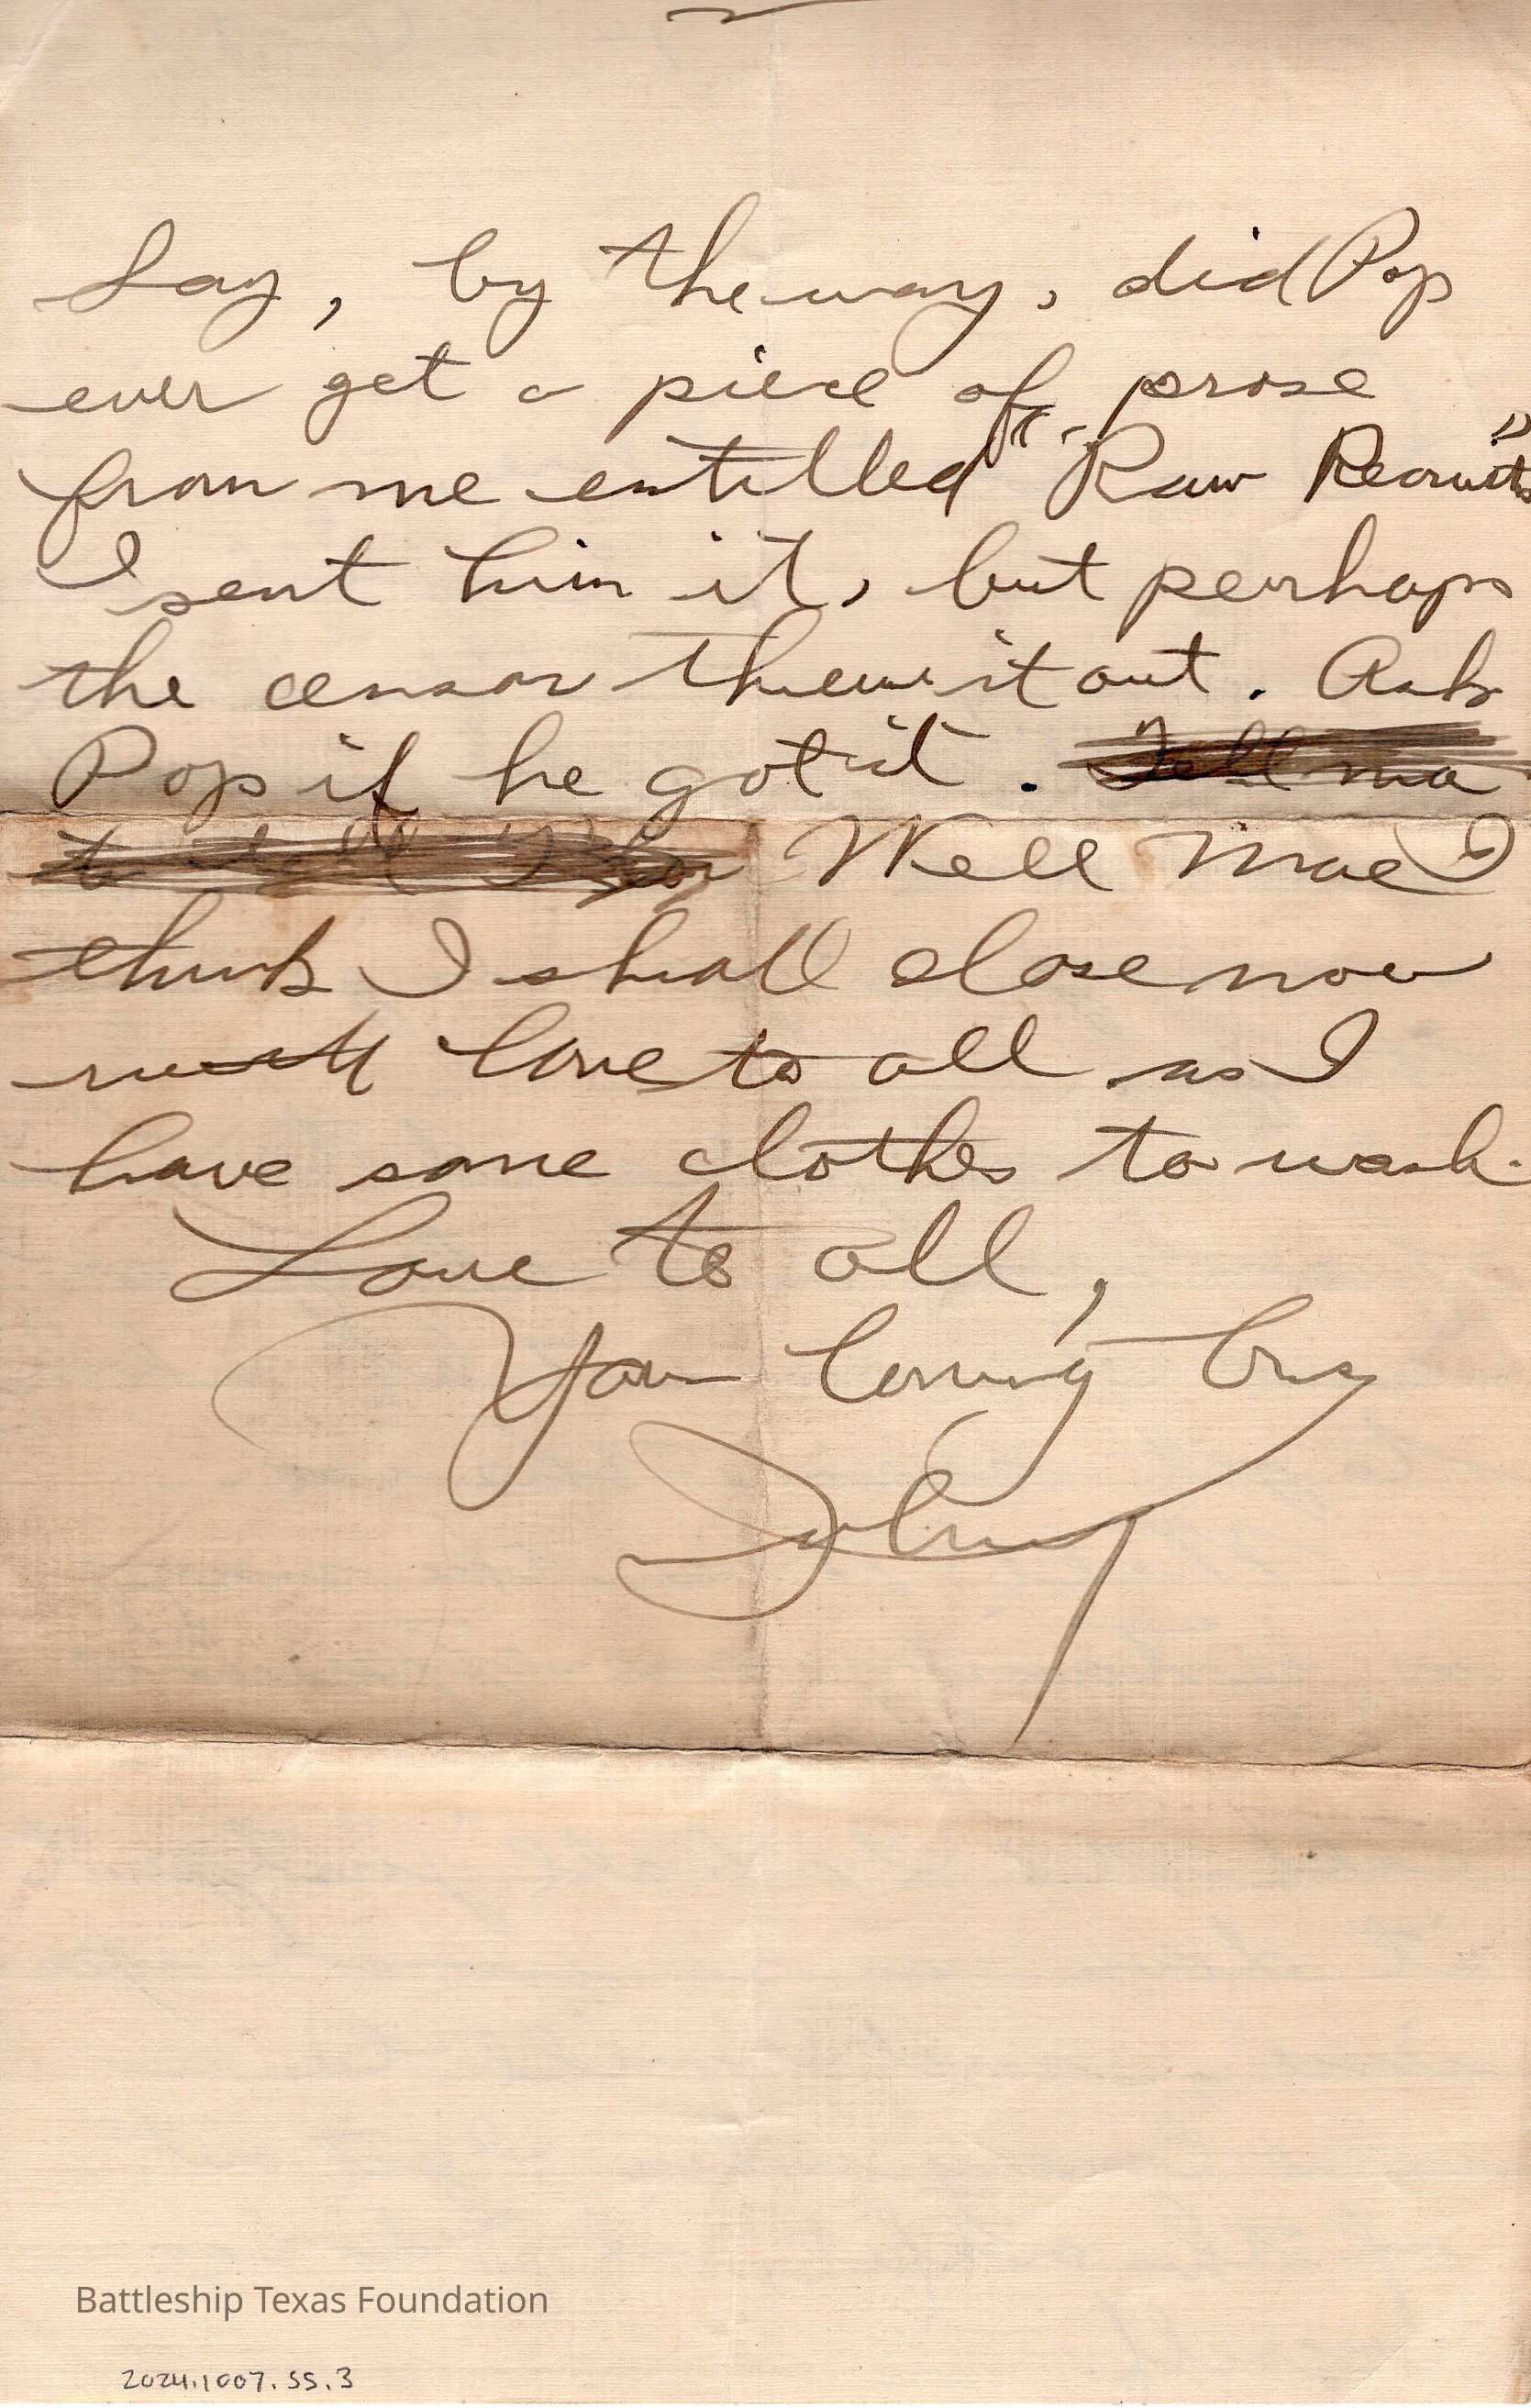 Say, by the way, did Pop
ever get a piece of prose
from me entitled "Raw Recruits"
I sent him it, but perhaps
the censor threw it out. Ask
Pop if he got it. Tell me
to Well Mae I
think I shall close now
with love to all as I
have some clothes to wash.
Love to all,
Your loving
Johnny
Battleship Texas Foundation
2024.1007.SS.3